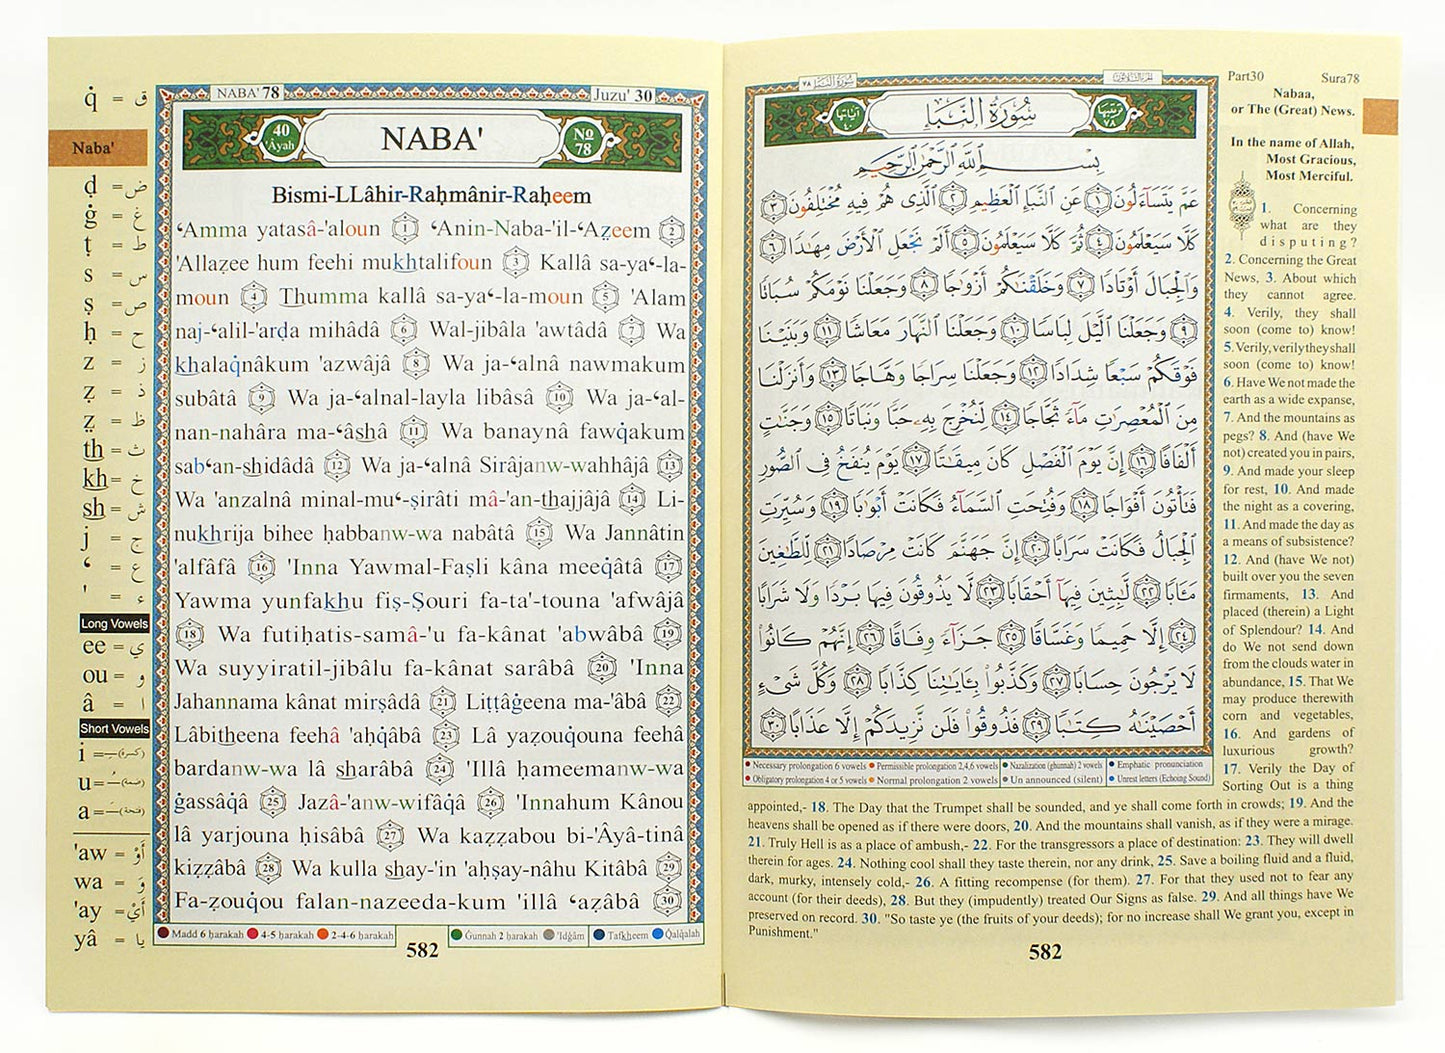 q̇ = ق
Naba'
ḍ = ض
ġ = غ
ṭ = ط
s = س
ṣ = ص
ḥ = ح
z = ز
ẓ = ذ
z̤ = ظ
th = ث
kh = خ
sh = ش
j = ج
‘ = ع
' = ء
Long Vowels
ee = ي
ou = و
â = ا
Short Vowels
i = (كسرة)
u = (ضمة)
a = (فتحة)
'aw = أَوْ
wa = وَ
'ay = أَيْ
yâ = يا
NABA' 78
Juzu' 30
40 'Âyah
NABA'
No 78
Bismi-LLâhir-Raḥmânir-Raḥeem
‘Amma yatasâ-'aloun 1 ‘Anin-Naba-'il-‘Aẓeem 2
'Allaẓee hum feehi mukhtalifoun 3 Kallâ sa-ya‘-la-
moun 4 Thumma kallâ sa-ya‘-la-moun 5 'Alam
naj-‘alil-'arḍa mihâdâ 6 Wal-jibâla 'awtâdâ 7 Wa
khalaq̇nâkum 'azwâjâ 8 Wa ja-‘alnâ nawmakum
subâtâ 9 Wa ja-‘alnal-layla libâsâ 10 Wa ja-‘al-
nan-nahâra ma-‘âshâ 11 Wa banaynâ fawq̇akum
sab‘an-shidâdâ 12 Wa ja-‘alnâ Sirâjanw-wahhâjâ 13
Wa 'anzalnâ minal-mu‘-ṣirâti mâ-'an-thajjâjâ 14 Li-
nukhrija bihee ḥabbanw-wa nabâtâ 15 Wa Jannâtin
'alfâfâ 16 'Inna Yawmal-Faṣli kâna meeq̇âtâ 17
Yawma yunfakhu fiṣ-Ṣouri fa-ta'-touna 'afwâjâ
18 Wa futiḥatis-samâ-'u fa-kânat 'abwâbâ 19
Wa suyyiratil-jibâlu fa-kânat sarâbâ 20 'Inna
Jahannama kânat mirṣâdâ 21 Liṭṭâġeena ma-'âbâ 22
Lâbitheena feehâ 'aḥq̇âbâ 23 Lâ yaẓouq̇ouna feehâ
bardanw-wa lâ sharâbâ 24 'Illâ ḥameemanw-wa
ġassâq̇â 25 Jazâ-'anw-wifâq̇â 26 'Innahum Kânou
lâ yarjouna ḥisâbâ 27 Wa kaẓẓabou bi-'Âyâ-tinâ
kiẓẓâbâ 28 Wa kulla shay-'in 'aḥṣay-nâhu Kitâbâ 29
Fa-ẓouq̇ou falan-nazeeda-kum 'illâ ‘aẓâbâ 30
Madd 6 ḥarakah 4-5 ḥarakah 2-4-6 ḥarakah Gunnah 2 ḥarakah 'Idġâm Tafkheem Q̇alq̇alah
582
سُورَةُ النَّبَإِ ٧٨
الجزء الثلاثون
آياتها ٤٠
سُورَةُ النَّبَإِ
ترتيبها ٧٨
بِسْمِ اللَّهِ الرَّحْمَٰنِ الرَّحِيمِ
عَمَّ يَتَسَآءَلُونَ ١ عَنِ ٱلنَّبَإِ ٱلْعَظِيمِ ٢ ٱلَّذِى هُمْ فِيهِ مُخْتَلِفُونَ ٣
كَلَّا سَيَعْلَمُونَ ٤ ثُمَّ كَلَّا سَيَعْلَمُونَ ٥ أَلَمْ نَجْعَلِ ٱلْأَرْضَ مِهَٰدًا ٦
وَٱلْجِبَالَ أَوْتَادًا ٧ وَخَلَقْنَٰكُمْ أَزْوَٰجًا ٨ وَجَعَلْنَا نَوْمَكُمْ سُبَاتًا
٩ وَجَعَلْنَا ٱلَّيْلَ لِبَاسًا ١٠ وَجَعَلْنَا ٱلنَّهَارَ مَعَاشًا ١١ وَبَنَيْنَا
فَوْقَكُمْ سَبْعًا شِدَادًا ١٢ وَجَعَلْنَا سِرَاجًا وَهَّاجًا ١٣ وَأَنزَلْنَا
مِنَ ٱلْمُعْصِرَٰتِ مَآءً ثَجَّاجًا ١٤ لِّنُخْرِجَ بِهِۦ حَبًّا وَنَبَاتًا ١٥ وَجَنَّٰتٍ
أَلْفَافًا ١٦ إِنَّ يَوْمَ ٱلْفَصْلِ كَانَ مِيقَٰتًا ١٧ يَوْمَ يُنفَخُ فِى ٱلصُّورِ
فَتَأْتُونَ أَفْوَاجًا ١٨ وَفُتِحَتِ ٱلسَّمَآءُ فَكَانَتْ أَبْوَٰبًا ١٩ وَسُيِّرَتِ
ٱلْجِبَالُ فَكَانَتْ سَرَابًا ٢٠ إِنَّ جَهَنَّمَ كَانَتْ مِرْصَادًا ٢١ لِّلطَّٰغِينَ
مَـَٔابًا ٢٢ لَّٰبِثِينَ فِيهَآ أَحْقَابًا ٢٣ لَّا يَذُوقُونَ فِيهَا بَرْدًا وَلَا شَرَابًا
٢٤ إِلَّا حَمِيمًا وَغَسَّاقًا ٢٥ جَزَآءً وِفَاقًا ٢٦ إِنَّهُمْ كَانُوا۟
لَا يَرْجُونَ حِسَابًا ٢٧ وَكَذَّبُوا۟ بِـَٔايَٰتِنَا كِذَّابًا ٢٨ وَكُلَّ شَىْءٍ
أَحْصَيْنَٰهُ كِتَٰبًا ٢٩ فَذُوقُوا۟ فَلَن نَّزِيدَكُمْ إِلَّا عَذَابًا ٣٠
Necessary prolongation 6 vowels Permissible prolongation 2,4,6 vowels Nazalization (ghunnah) 2 vowels Emphatic pronunciation
Obligatory prolongation 4 or 5 vowels Normal prolongation 2 vowels Un announced (silent) Unrest letters (Echoing Sound)
Part30 Sura78
Nabaa,
or The (Great) News.
In the name of Allah,
Most Gracious,
Most Merciful.
1. Concerning
what are they
disputing?
2. Concerning the Great
News, 3. About which
they cannot agree.
4. Verily, they shall
soon (come to) know!
5. Verily, verily they shall
soon (come to) know!
6. Have We not made the
earth as a wide expanse,
7. And the mountains as
pegs? 8. And (have We
not) created you in pairs,
9. And made your sleep
for rest, 10. And made
the night as a covering,
11. And made the day as
a means of subsistence?
12. And (have We not)
built over you the seven
firmaments, 13. And
placed (therein) a Light
of Splendour? 14. And
do We not send down
from the clouds water in
abundance, 15. That We
may produce therewith
corn and vegetables,
16. And gardens of
luxurious growth?
17. Verily the Day of
Sorting Out is a thing
appointed,- 18. The Day that the Trumpet shall be sounded, and ye shall come forth in crowds; 19. And the
heavens shall be opened as if there were doors, 20. And the mountains shall vanish, as if they were a mirage.
21. Truly Hell is as a place of ambush,- 22. For the transgressors a place of destination: 23. They will dwell
therein for ages. 24. Nothing cool shall they taste therein, nor any drink, 25. Save a boiling fluid and a fluid,
dark, murky, intensely cold,- 26. A fitting recompense (for them). 27. For that they used not to fear any
account (for their deeds), 28. But they (impudently) treated Our Signs as false. 29. And all things have We
preserved on record. 30. "So taste ye (the fruits of your deeds); for no increase shall We grant you, except in
Punishment."
582